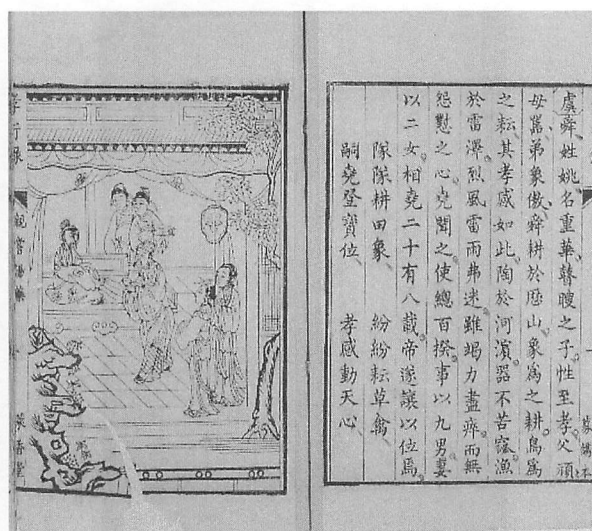 虞舜姓姚名重華瞽瞍之子性至孝父頑
母嚚弟象傲舜耕於歷山象為之耕鳥為
之耘其孝感如此陶於河濱器不苦窳漁
於雷澤烈風雷雨弗迷雖竭力盡瘁而無
怨懟之心堯聞之使總百揆事以九男妻
以二女相堯二十有八載帝遂讓以位焉
隊隊耕田象 紛紛耘草禽
嗣堯登寶位 孝感動天心
孝行錄
親嘗湯藥